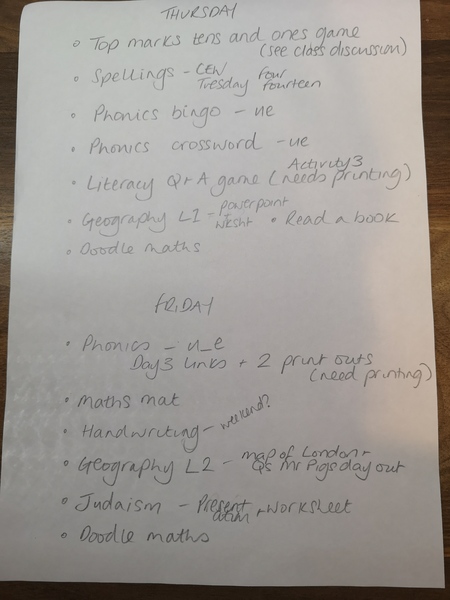 THURSDAY
• Top marks tens and ones game
(see class discussion)
• Spellings - CEW four
Tuesday fourteen
• Phonics bingo - ue
• Phonics crossword - ue
Activity 3
• Literacy Q+A game (needs printing)
• Geography L1 - powerpoint
wksht • Read a book
• Doodle maths
FRIDAY
• Phonics - u_e
Day 3 links + 2 print outs
(need printing)
• Maths mat
• Handwriting - weekend?
• Geography L2 - map of London +
Qs Mr Pigs day out
• Judaism - Present
ation + worksheet
• Doodle maths